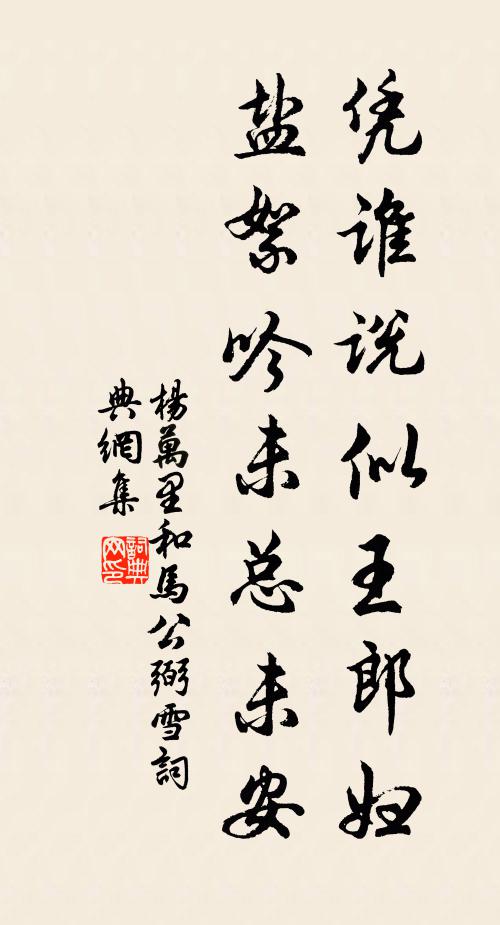 凭谁说似王郎妇
盐絮吟未总未安
楊萬里和馬公弼雪詞
典網集
詞典网印